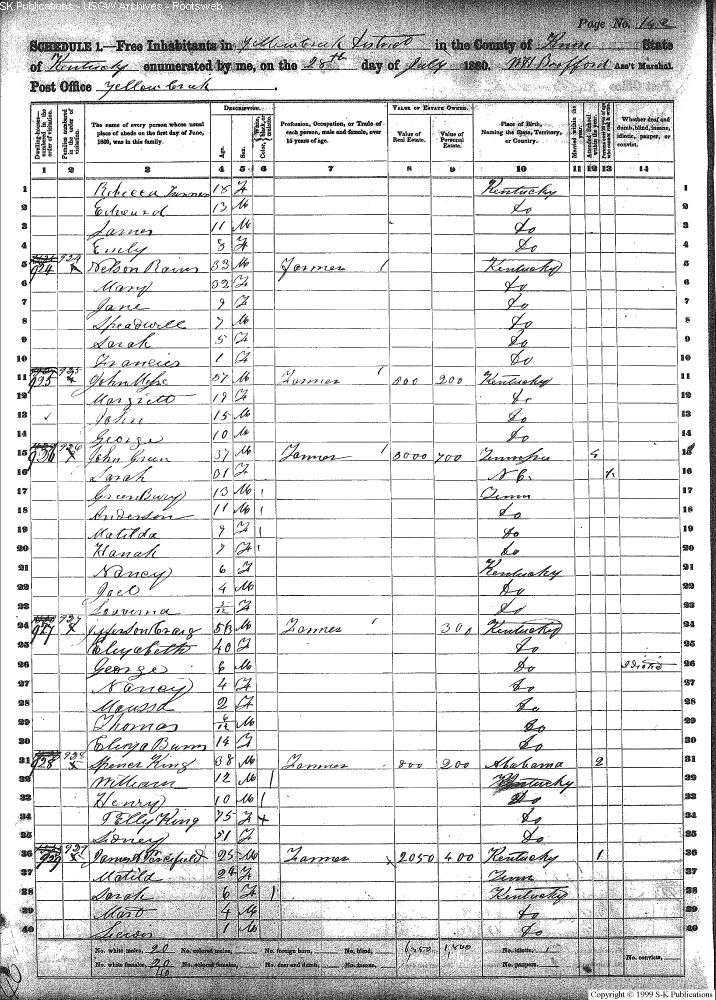 SK Publications - USGW Archives - Rootsweb
Page No. 142
SCHEDULE 1.—Free Inhabitants in Yellow Creek District in the County of Knox State
of Kentucky enumerated by me, on the 28th day of July 1860. Ass't Marshal.
Post Office Yellow Creek
DESCRIPTION. VALUE OF ESTATE OWNED.
Dwelling-houses—numbered in the order of visitation.
Families numbered in the order of visitation.
The name of every person whose usual place of abode on the first day of June, 1860, was in this family.
Age.
Sex.
Color, White, black, or mulatto.
Profession, Occupation, or Trade of each person, male and female, over 15 years of age.
Value of Real Estate.
Value of Personal Estate.
Place of Birth, Naming the State, Territory, or Country.
Married within the year.
Attended School within the year.
Whether deaf and dumb, blind, insane, idiotic, pauper, or convict.
1 2 3 4 5 6 7 8 9 10 11 12 13 14
1 Rebecca Turner 18 F Kentucky 1
2 Edward 13 M do 2
3 James 11 M do 3
4 Emily 8 F do 4
5 924 924 Nelson Rains 33 M Farmer 1 Kentucky 5
6 Mary 32 F do 6
7 Jane 9 F do 7
8 Speadwell 7 M do 8
9 Sarah 5 F do 9
10 Francies 1 F do 10
11 925 925 John 57 M Farmer 1 500 200 Kentucky 11
12 Margrett 19 F do 12
13 John 15 M do 13
14 George 10 M do 14
15 926 926 John Green 37 M Farmer 1 3000 700 Tennessee 15
16 Sarah 31 F N C. 16
17 GreenBury 13 M 1 Tenn 17
18 Anderson 11 M 1 do 18
19 Matilda 9 F 1 do 19
20 Hanah 7 F 1 do 20
21 Nancy 6 F Kentucky 21
22 Joel 4 M do 22
23 F do 23
24 927 927 Jefferson Craig 53 M Farmer 1 300 Kentucky 24
25 Elizabeth 40 F do 25
26 George 6 M do Idiotic 26
27 Nancy 4 F do 27
28 2 F do 28
29 Thomas 6/12 M do 29
30 Burns 14 F do 30
31 928 928 Spencer King 38 M Farmer 1 800 200 Alabama 2 31
32 William 12 M 1 Kentucky 32
33 Henry 10 M 1 do 33
34 Elly King 75 F + do 34
35 Sidney 51 F do 35
36 929 929 James 25 M Farmer 2050 400 Kentucky 1 36
37 Matilda 24 F Tenn 37
38 Sarah 6 F 1 Kentucky 38
39 4 M do 39
40 1 M do 40
No. white males, 20 No. colored males, No. foreign born, No. blind, No. idiotic, 1 No. convicts,
No. white females, 20 No. colored females, No. deaf and dumb, No. insane, No. paupers,
40
Copyright © 1999 S-K Publications